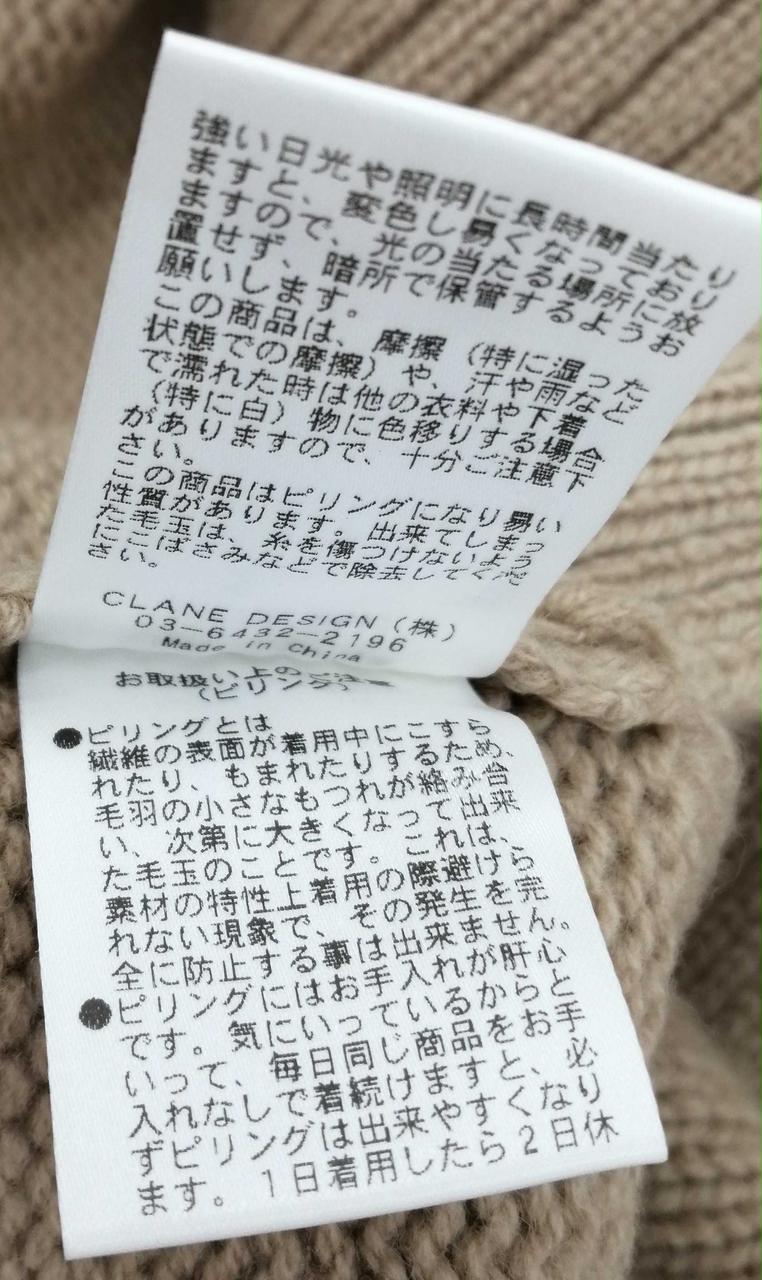 強い日光や照明に長時間当たり
ますと、変色し易くなっており
ますので、光の当たる場所に放
置せず、暗所で保管するようお
願いします。
この商品は、摩擦（特に湿った
状態での摩擦）や、汗や雨など
で濡れた時は他の衣料や下着
（特に白）物に色移りする場合
がありますので、十分ご注意下
さい。
この商品はピリングになり易い
性質があります。出来てしまっ
た毛玉は、糸を傷つけないよう
にこばさみなどで除去してくだ
さい。
CLANE DESIGN（株）
03−6432−2196
Made in China
お取扱い上のご注意
（ピリング）
●ピリングとは
繊維の表面が着用中にこすら
れたり、もまれたりするため、
毛羽の小さなもつれが絡み合
い、次第に大きくなって出来
た毛玉のことです。これは、
素材の特性上、着用の際避けら
れない現象で、その発生を完
全に防止する事は出来ません。
●ピリングにはお手入れが肝心
です。気にいっているからと
いって、毎日同じ商品をお手
入れなしで着続けますと、必
ずピリングは出来やすくなり
ます。1日着用したら2日休